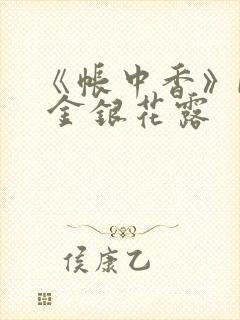 《帐中香》
金银花露
侯康乙